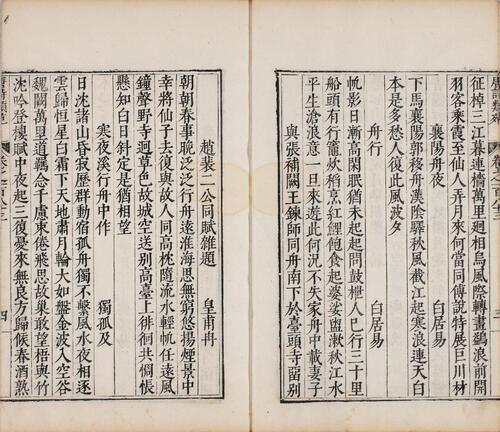 征棹三江暮連檣萬里廻相烏風際轉畫鷁浪前開
羽客乘霞至仙人弄月來何當同傅說特展巨川材
襄陽舟夜 白居易
下馬襄陽郭移舟漢陰驛秋風截江起寒浪連天白
本是多愁人復此風波夕
舟行 白居易
帆影日漸高閑眠猶未起起問鼓枻人已行三十里
船頭有行竈炊稻烹紅鯉飽食起婆娑盥漱秋江水
平生滄浪意一旦來遊此何況不失家舟中載妻子
與張補闕王鍊師同舟南下於臺頭寺留別
趙裴二公同賦雜題 皇甫冉
朝朝春事晚泛泛行舟遠淮海思無窮悠揚煙景中
幸將仙子去復與故人同高枕隨流水輕帆任遠風
鐘聲野寺迥草色故城空送別高臺上徘徊共惆悵
懸知白日斜定是猶相望
寒夜溪行舟中作 獨孤及
日沈諸山昏寂歷群動宿孤舟獨不繫風水夜相逐
雲歸恒星白霜下天地肅月輪大如盤金波入空谷
魏闕萬里道羈念千慮束倦飛思故巢敢望梧與竹
沈吟登樓賦中夜起三復憂來無良方歸候春酒熟
四